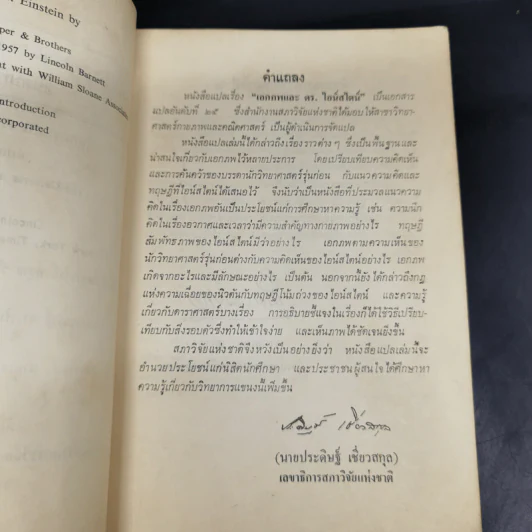 Einstein by
per & Brothers
957 by Lincoln Barnett
nt with William Sloane Associates
ntroduction
corporated
คำแถลง
หนังสือแปลเรื่อง "เอกภพและ ดร. ไอน์สไตน์" เป็นเอกสาร
แปลอันดับที่ ๒๕ ซึ่งสำนักงานสภาวิจัยแห่งชาติได้มอบให้สาขาวิทยา-
ศาสตร์กายภาพและคณิตศาสตร์ เป็นผู้ดำเนินการจัดแปล
หนังสือแปลเล่มนี้ได้กล่าวถึงเรื่องราวต่าง ๆ ซึ่งเป็นพื้นฐานและ
น่าสนใจเกี่ยวกับเอกภพไว้หลายประการ โดยเปรียบเทียบความคิดเห็น
และการค้นคว้าของบรรดานักวิทยาศาสตร์รุ่นก่อน กับแนวความคิดและ
ทฤษฎีที่ไอน์สไตน์ได้เสนอไว้ จึงนับว่าเป็นหนังสือที่ประมวลแนวความ
คิดในเรื่องเอกภพอันเป็นประโยชน์แก่การศึกษาหาความรู้ เช่น ความนึก
คิดในเรื่องอวกาศและเวลาว่ามีความสำคัญทางกายภาพอย่างไร ทฤษฎี
สัมพัทธภาพของไอน์สไตน์มีว่าอย่างไร เอกภพตามความเห็นของ
นักวิทยาศาสตร์รุ่นก่อนต่างกับความคิดเห็นของไอน์สไตน์อย่างไร เอกภพ
เกิดจากอะไรและมีลักษณะอย่างไร เป็นต้น นอกจากนี้ยังได้กล่าวถึงกฎ
แห่งความเฉื่อยของนิวตันกับทฤษฎีโน้มถ่วงของไอน์สไตน์ และความรู้
เกี่ยวกับดาราศาสตร์บางเรื่อง การอธิบายชี้แจงในเรื่องก็ได้ใช้วิธีเปรียบ-
เทียบกับสิ่งรอบตัวซึ่งทำให้เข้าใจง่าย และเห็นภาพได้ชัดเจนยิ่งขึ้น
สภาวิจัยแห่งชาติจึงหวังเป็นอย่างยิ่งว่า หนังสือแปลเล่มนี้จะ
อำนวยประโยชน์แก่นิสิตนักศึกษา และประชาชนผู้สนใจได้ศึกษาหา
ความรู้เกี่ยวกับวิทยาการแขนงนี้เพิ่มขึ้น
(นายประดิษฐ์ เชี่ยวสกุล)
เลขาธิการสภาวิจัยแห่งชาติ